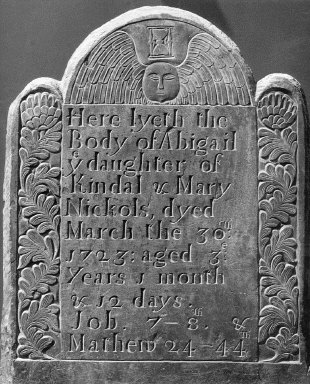 Here lyeth the
Body of Abigail
yͤ daughter of
Kindal & Mary
Nickols, dyed
March the 30ᵗʰ
1723: aged 3:
Years 1 month
& 12 days.
Job. 7-8. &
Mathew 24-44ᵗʰ